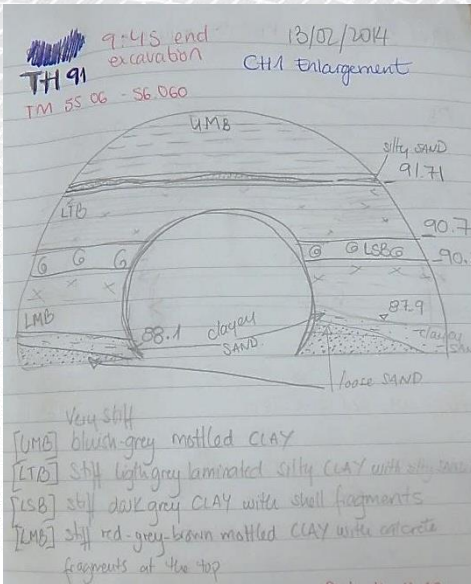 9:45 end 13/02/2014
excavation CH1 Enlargement
TH 91
TM 55 06 - 56.060
UMB
silty SAND
91.71
LTB
90.7
G G G G G LSB G 90.
LMB
88.1 clayey 87.9
SAND clayey
loose SAND
Very stiff
[UMB] bluish-grey mottled CLAY
[LTB] Stiff light grey laminated silty CLAY with silty SAND
[LSB] stiff dark grey CLAY with shell fragments
[LMB] stiff red-grey-brown mottled CLAY with calcrete
fragments at the top